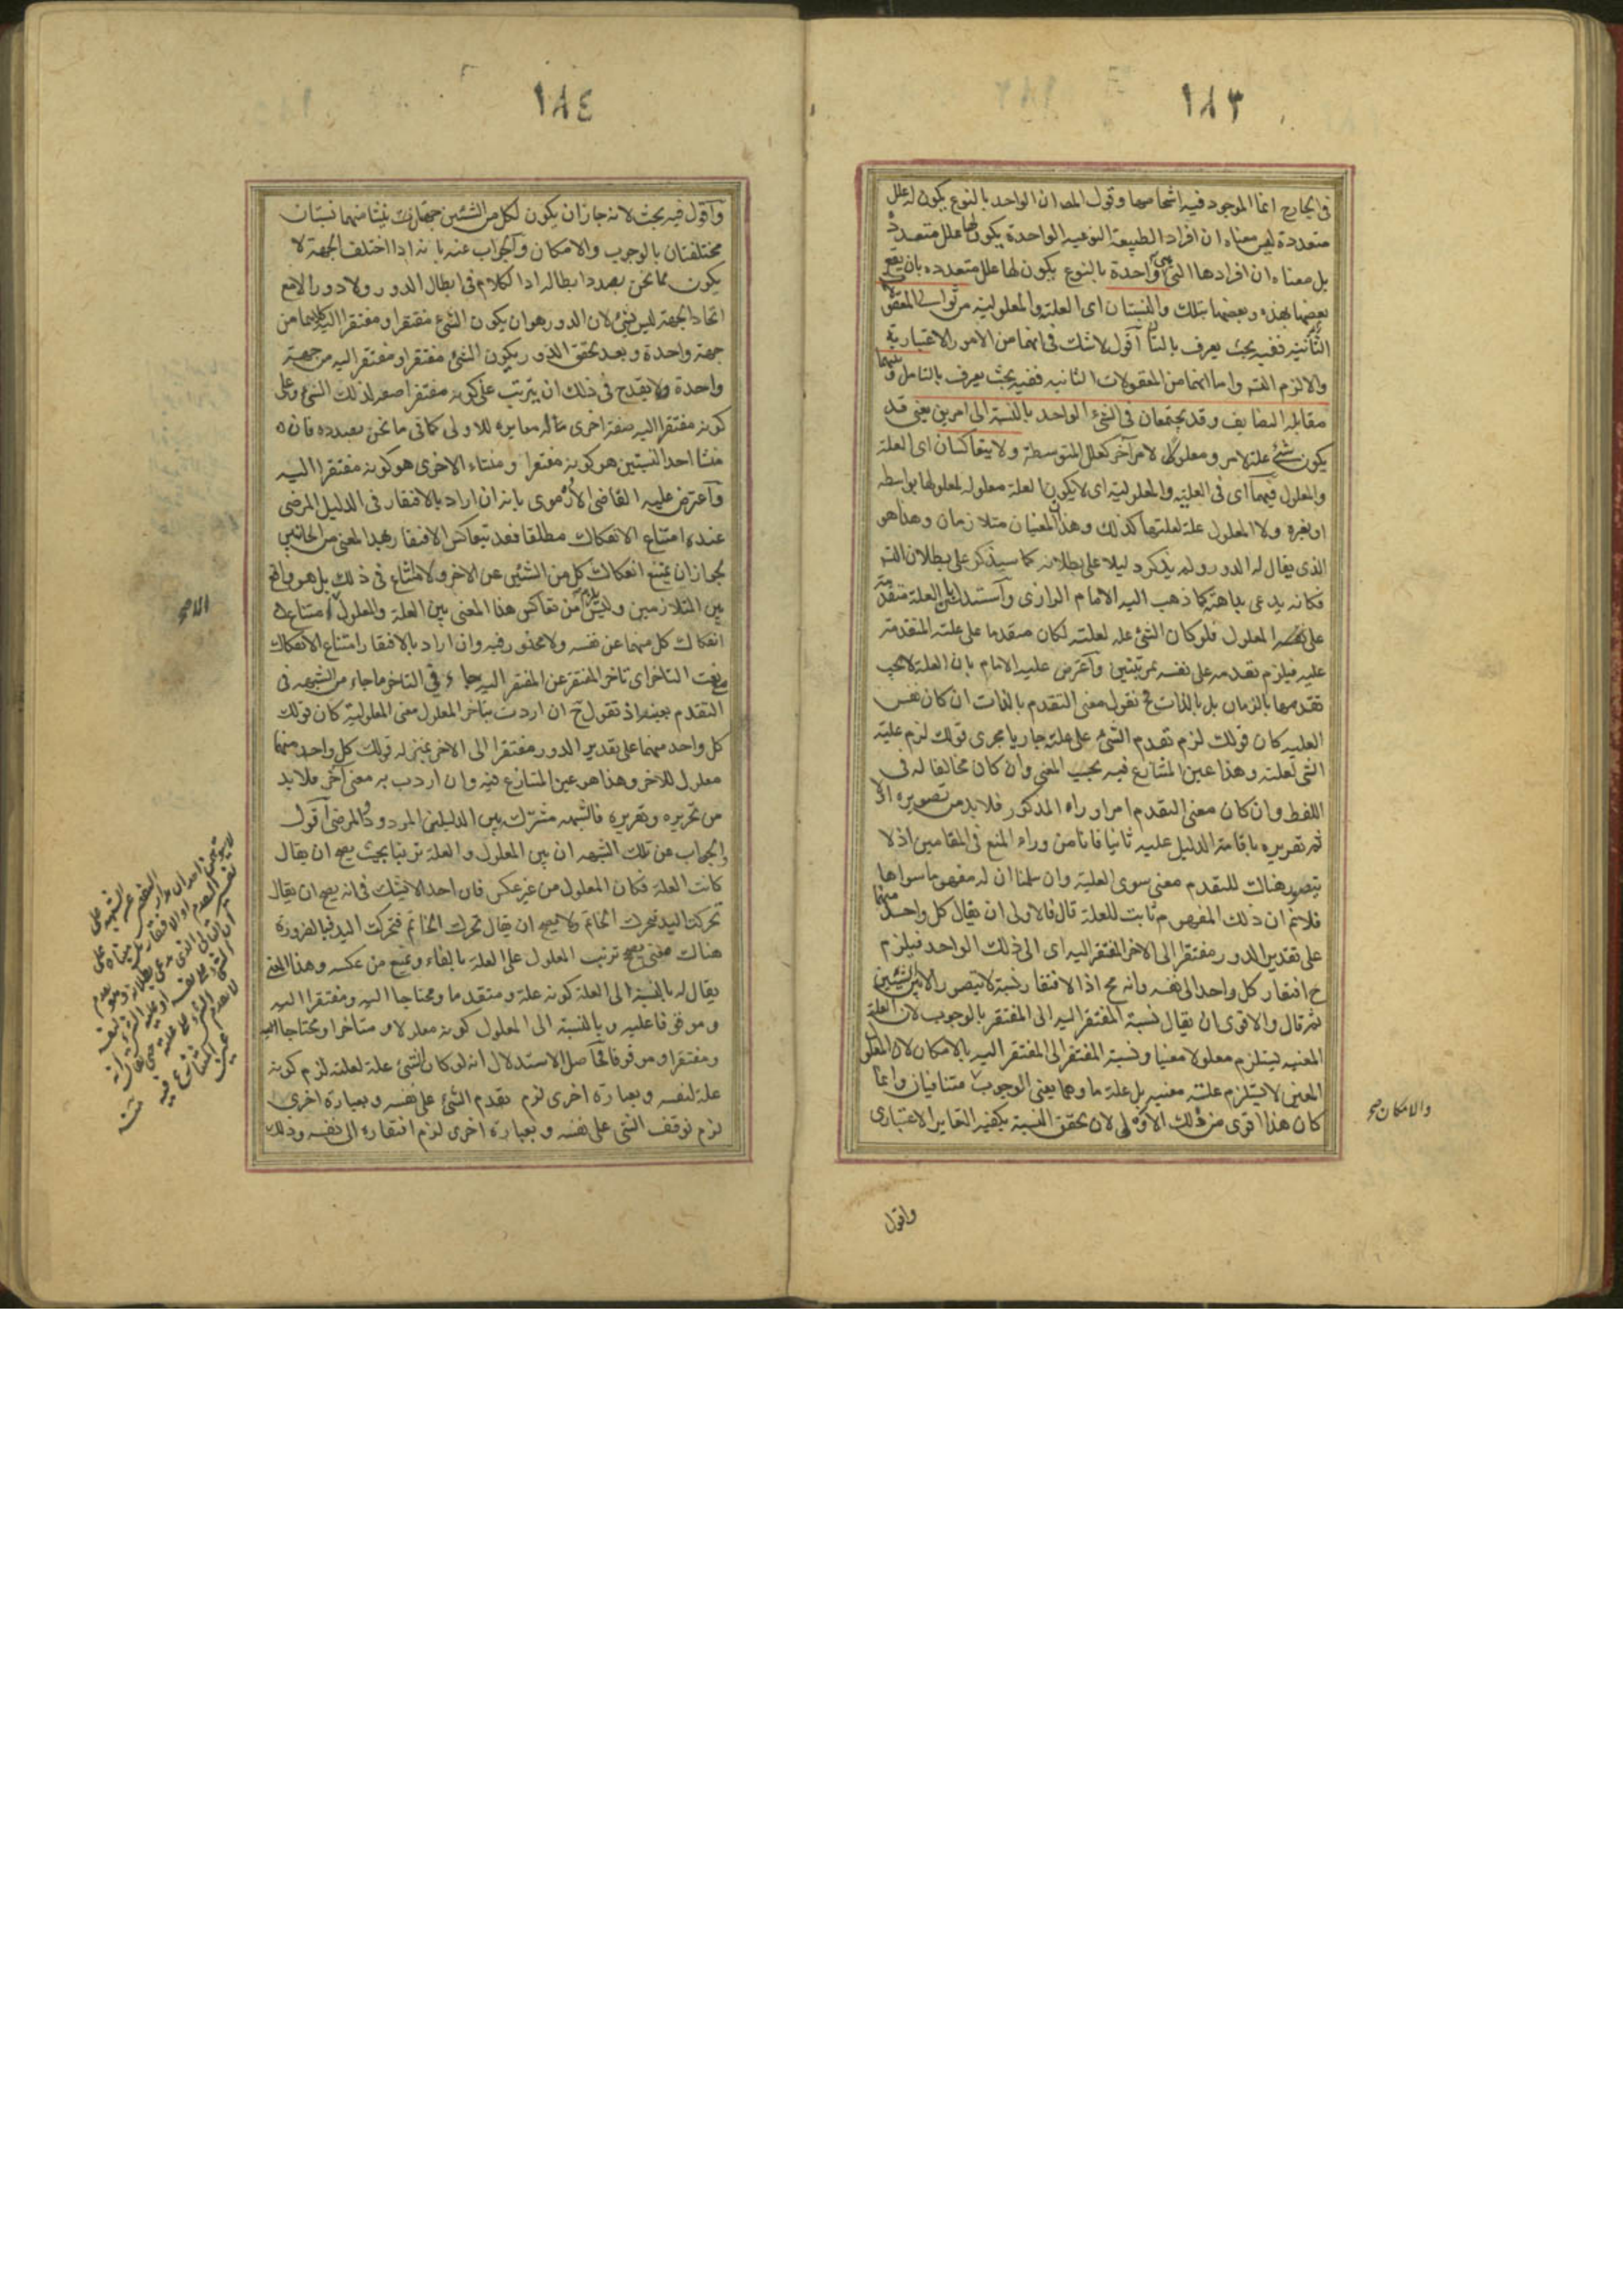 ١٨٣
فى الخارج انما الموجود فيه اشخاصها وقول المص ان الواحد بالنوع يكون له علل
متعددة ليس معناه ان افراد الطبيعة النوعيه الواحدة يكون لها علل متعددة
بل معناه ان افرادها التى هى واحدة بالنوع يكون لها علل متعدده بان يقع
بعضها بهذه وبعضها بتلك والنسبتان اى العلية والمعلولية من ثوانى المعقولات
الثانية ففيه بحث يعرف بالتأمل اقول لا شك فى انهما من الامور الاعتبارية
والا لزم التسـ واما انهما من المعقولات الثانيه ففيه بحث يعرف بالتامل وبينهما
مقابلة التضايف وقد يجتمعان فى الشئ الواحد بالنسبة الى امرين يعنى قد
يكون شئ علة لامر ومعلولا لامر آخر كعلل المتوسطة ولا يتعاكسان اى العلة
والمعلول فيهما اى فى العلية والمعلولية اى لا يكون العلة معلولة لمعلولها بواسطه
او بغيره ولا المعلول علة لعلتها كذلك وهذان المعنيان متلازمان وهذا هو
الذى يقال له الدور ولم يذكر دليلا على بطلانه كما سيذكر على بطلان التسـ
فكانه يدعى بداهته كما ذهب اليه الامام الرازى وآستدل بان العلة متقدمة
على المعلول فلو كان الشئ علة لعلته لكان متقدما على علته المتقدمة
عليه فيلزم تقدمه على نفسه بمرتبتين وآعترض عليه الامام بان العلة لا يجب
تقدمها بالزمان بل بالذات فح نقول معنى التقدم بالذات ان كان نفس
العليه كان قولك لزم تقدم الشئ على علته جاريا مجرى قولك لزم علية
الشى لعلته وهذا عين المتنازع فيه بحسب المعنى وان كان مخالفا له فى
اللفظ وان كان معنى التقدم امرا وراء المذكور فلا بد من تصويره اولا
ثم تقريره باقامة الدليل عليه ثانيا فانا من وراء المنع فى المقامين اذ لا
يتصور هناك للتقدم معنى سوى العلية وان سلمنا ان له مفهوما سواها
فلانم ان ذلك المفهوم ثابت للعلة قال فالاولى ان يقال كل واحد منهما
على تقدير الدور مفتقر الى الاخر المفتقر اليه اى الى ذلك الواحد فيلزم
ح افتقار كل واحد الى نفسه وانه مح اذ الافتقار نسبة لا تتصور الا بين الشيئين
ثم قال والاقوى ان يقال نسبة المفتقر اليه الى المفتقر بالوجوب لان العلة
المعينه يستلزم معلولا معينا ونسبة المفتقر الى المفتقر اليه بالامكان لان المعلول
المعين لا يستلزم علته معينه بل علة ما وهما يعنى الوجوب متنافيان وانما
كان هذا اقوى من ذلك الاولى لان تحقق النسبة يكفيه التغاير الاعتبارى
والامكان صح
واقول
١٨٤
وآقول فيه بحث لانه جاز ان يكون لكل من الشيئين جهتان ينشا منهما نسبتان
مختلفتان بالوجوب والامكان وآلجواب عنه بانه اذا اختلف الجهة لا
يكون مما نحن بصدد ابطاله اذ الكلام فى ابطال الدور ولا دور الا مع
اتحاد الجهة ليس بشئ لان الدور هو ان يكون الشئ مفتقرا ومفتقرا اليه كليهما من
جهة واحدة وبعد تحقق الدور يكون الشئ مفتقرا ومفتقرا اليه من جهة
واحدة ولا يقدح فى ذلك ان يترتب على كونه مفتقرا صفة لذلك الشئ وعلى
كونه مفتقرا اليه صفة اخرى له مغايرة للاولى كما فى ما نحن بصدده فان
منشا احد النسبتين هو كونه مفتقرا ومنشاء الاخرى هو كونه مفتقرا اليه
وآعترض عليه القاضى الارموى بانه ان اراد بالافتقار فى الدليل المرضى
عنده امتناع الانفكاك مطلقا فقد يتعاكس الافتقار بهذا المعنى من الجانبين
لجواز ان يمتنع انفكاك كل من الشيئين عن الاخر ولا امتناع فى ذلك بل هو واقع
بين المتلازمين وليس يلزم من تعاكس هذا المعنى بين العلة والمعلول الا امتناع
انفكاك كل منهما عن نفسه ولا محذور فيه وان اراد بالافتقار امتناع الانفكاك
مع نعت التاخر اى تاخر المفتقر عن المفتقر اليه جاء فى التاخر ما جاء من الشبهه فى
التقدم بعينه اذ نقول ح ان اردت بتاخر المعلول معنى المعلولية كان قولك
كل واحد منهما على تقدير الدور مفتقرا الى الاخر بمنزله قولك كل واحد منهما
معلول للاخر وهذا هو عين المتنازع فيه وان اردت به معنى آخر فلا بد
من تحريره وتقريره فالشبهه مشترك بين الدليلين المردود والمرضى آقول
والجواب عن تلك الشبهه ان بين المعلول والعلة ترتبا بحيث يصح ان يقال
كانت العلة فكان المعلول من غير عكس فان احدا لا يشك فى انه يصح ان يقال
تحركت اليد فتحرك الخاتم ولا يصح ان يقال تحرك الخاتم فتحركت اليد فبالضرورة
هناك معنى يصحح ترتب المعلول على العلة بالفاء ويمنع من عكسه وهذا المعنى
يقال له بالنسبة الى العلة كونه علة ومتقدما ومحتاجا اليه ومفتقرا اليه
وموقوفا عليه وبالنسبة الى المعلول كونه معلولا ومتاخرا ومحتاجا
ومفتقرا وموقوفا فحاصل الاستدلال انه لو كان الشئ علة لعلته لزم كونه
علة لنفسه وبعبارة اخرى لزم تقدم الشئ على نفسه وبعبارة اخرى
لزم توقف الشى على نفسه وبعبارة اخرى لزم افتقاره الى نفسه وذلك